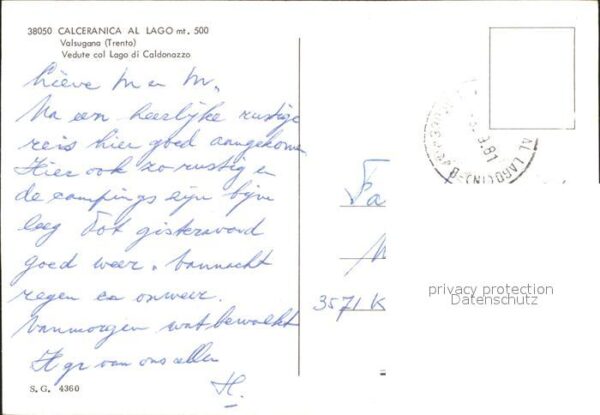 38050 CALCERANICA AL LAGO mt. 500
Valsugana (Trento)
Vedute col Lago di Caldonazzo
Lieve M en M,
Na een heerlijke rustige
reis hier goed aangekomen
Hier ook zo rustig en
de campings zijn bijn
leeg Tot gisteravond
goed weer. vannacht
regen en onweer.
Vanmorgen wat bewolkt
H gr van ons allen
H.
S. G. 4360
AL LAGO (TN)
9.81
Fa
3571 K
privacy protection
Datenschutz